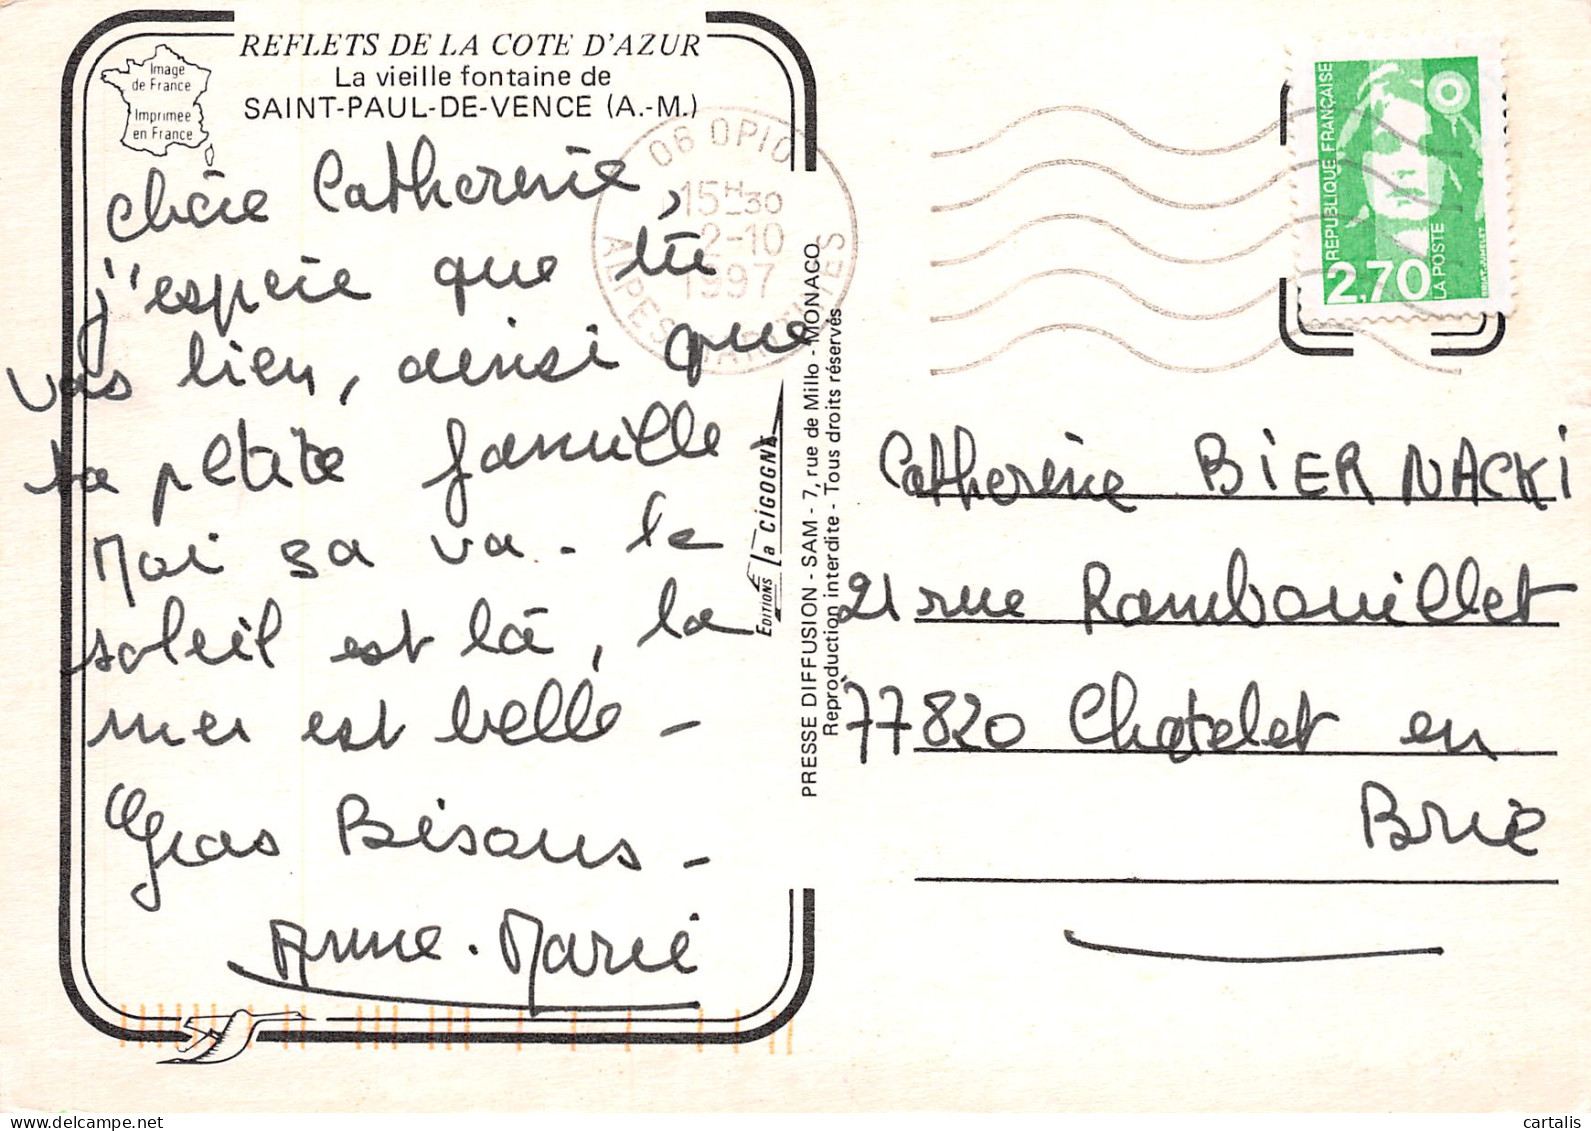 REFLETS DE LA COTE D'AZUR
La vieille fontaine de
SAINT-PAUL-DE-VENCE (A.-M.)
Image
de France
Imprimée
en France
chère Catherine,
j'espère que tu
vas bien, ainsi que
ta petite famille.
Moi sa va - le
soleil est là, la
mer est belle -
Gros Bisous -
Anne-Marie
06 OPIO
15H30
2-10
1997
ALPES MARITIMES
EDITIONS la CIGOGNE
PRESSE DIFFUSION - SAM - 7, rue de Millo - MONACO
Reproduction interdite - Tous droits réservés
REPUBLIQUE FRANÇAISE
2,70
LA POSTE
BRIAT-JUMELET
Catherine BIERNACKI
21 rue Rambouillet
77820 Chatelet en
Brie
cartalis